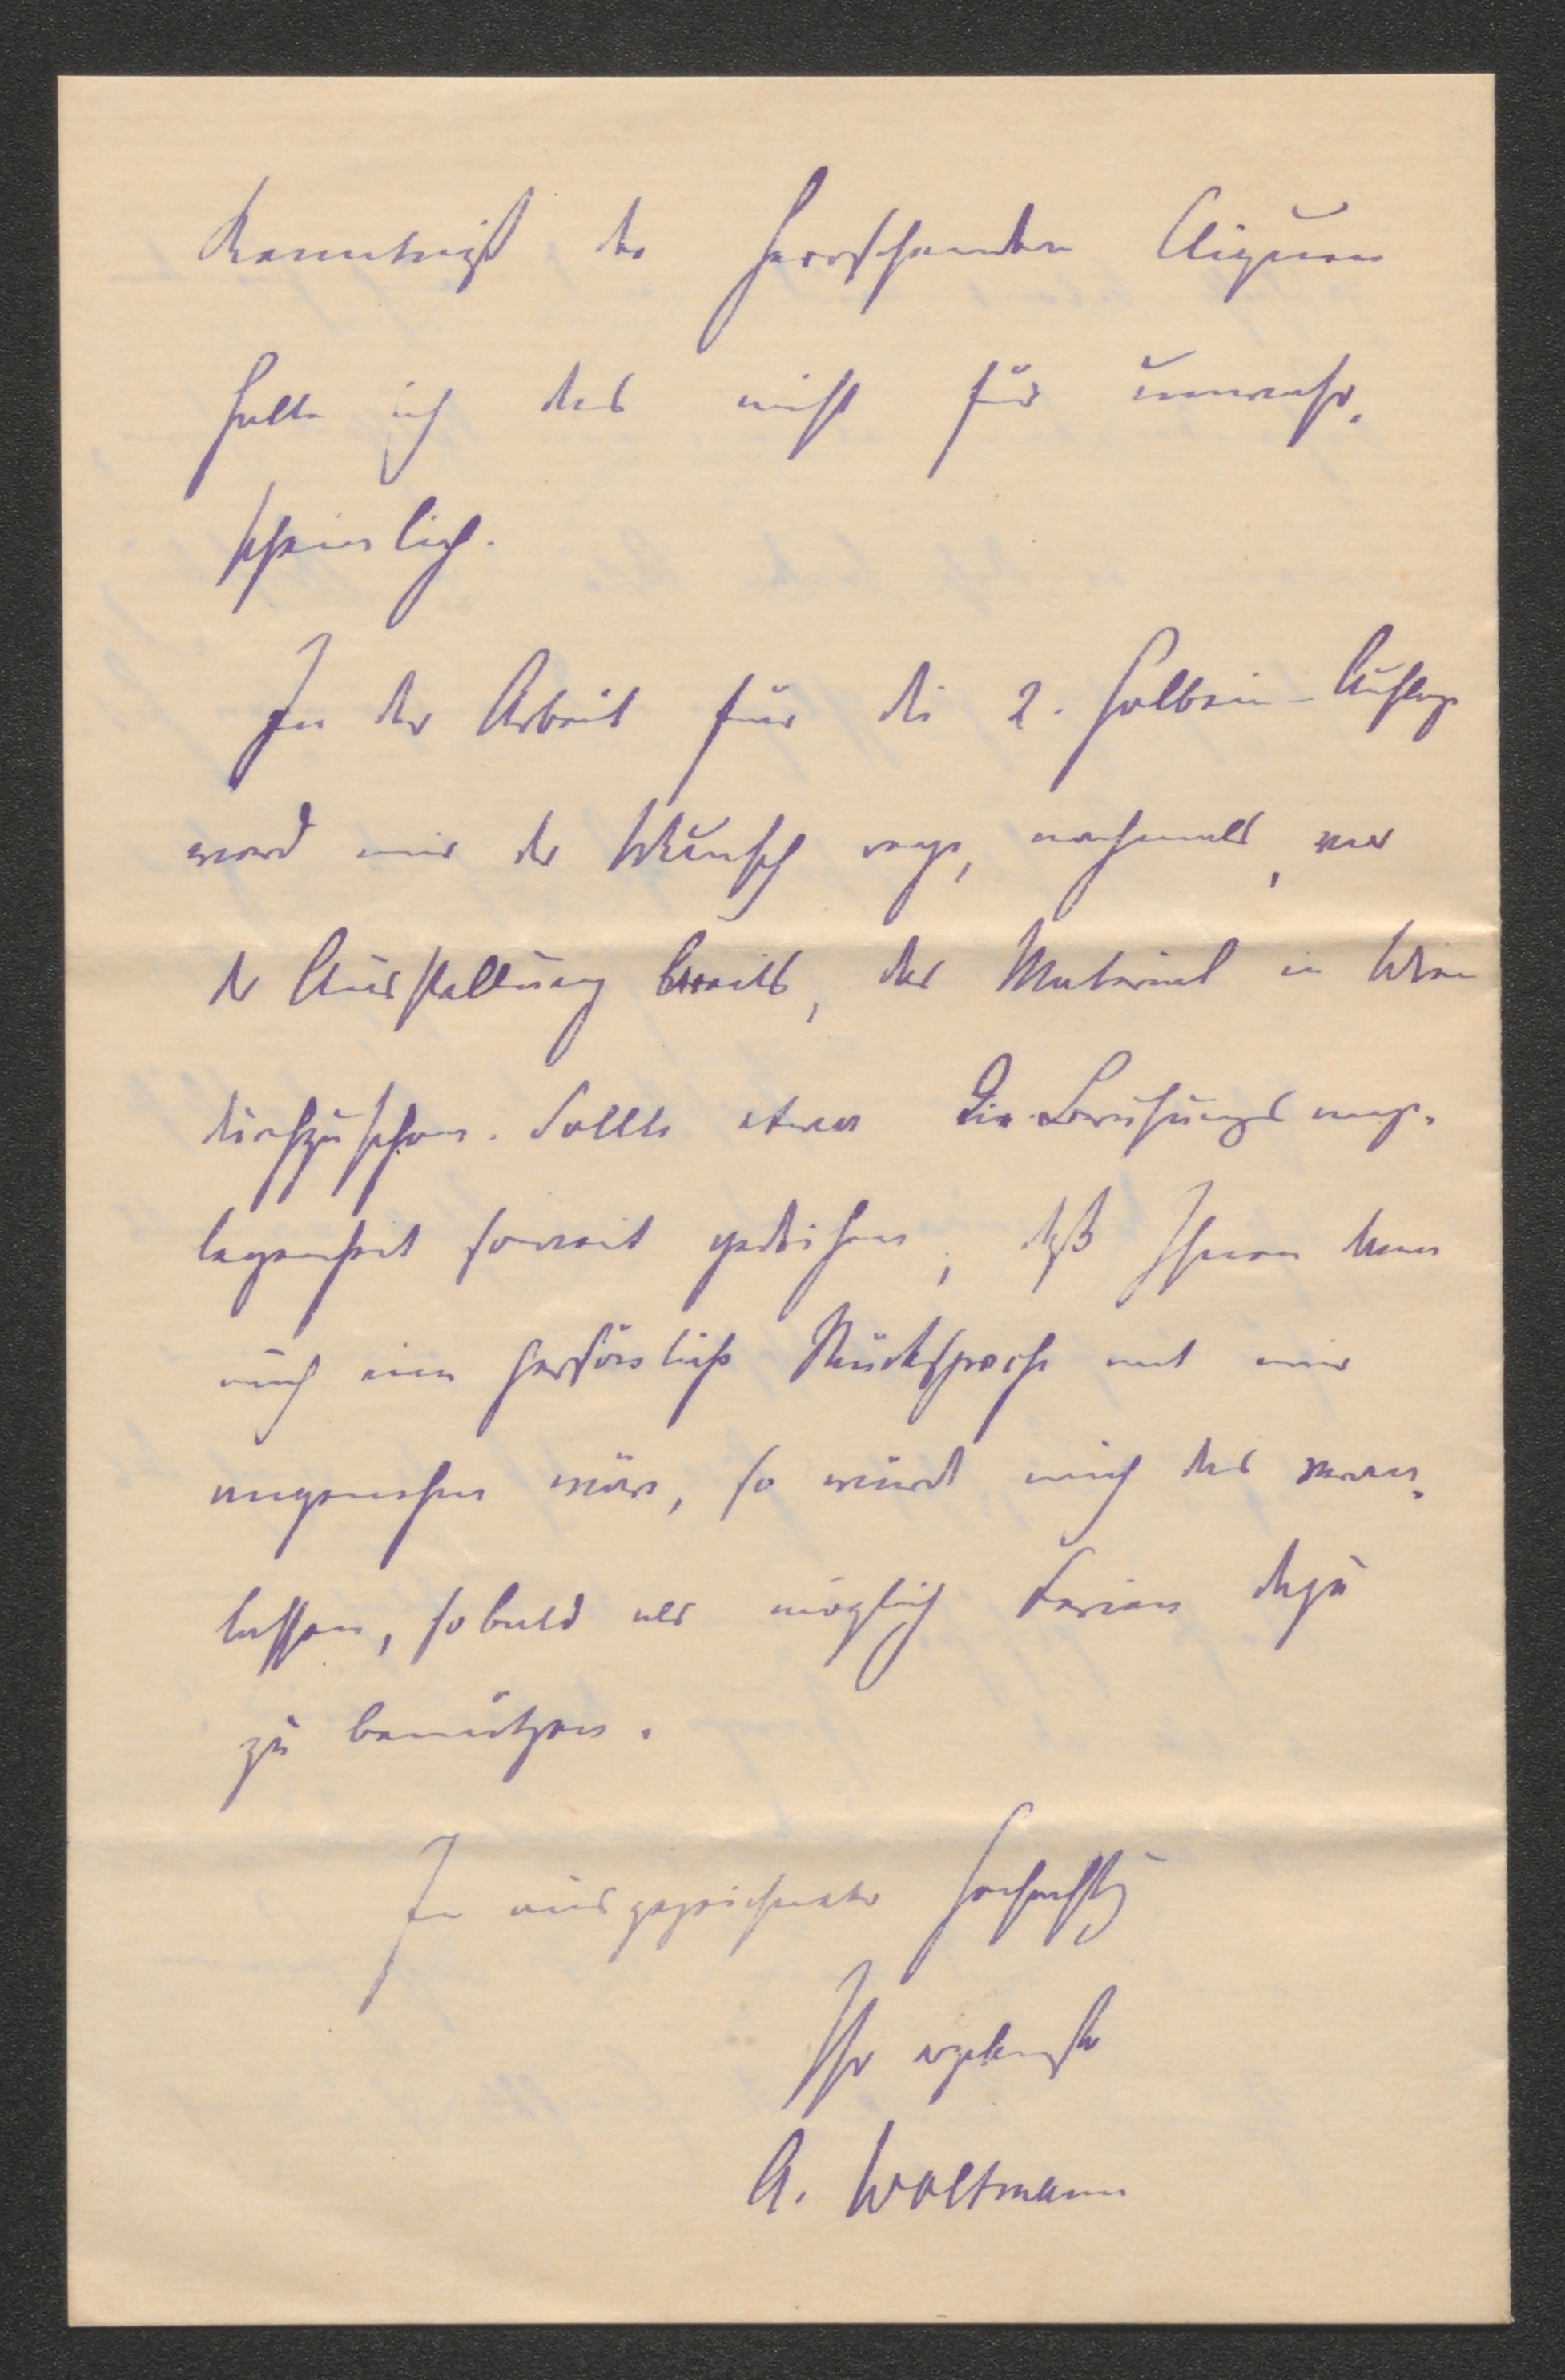 Kenntniß der herrschenden Augen
halte ich das nicht für unwahr-
scheinlich.
In der Arbeit für die 2. Holbein-Auflage
ward mir der Wunsch rege, nochmals, vor
der Ausstellung bereits, das Material in Wien
durchzusehen. Sollte etwa die Berufungsange-
legenheit soweit gediehen, daß Ihnen dann
auch eine persönliche Rücksprache mit mir
angenehm wäre, so würde mich das veran-
lassen, sobald als möglich Ferien dazu
zu benützen.
In ausgezeichneter Hochachtg
Ihr ergebenster
A. Woltmann